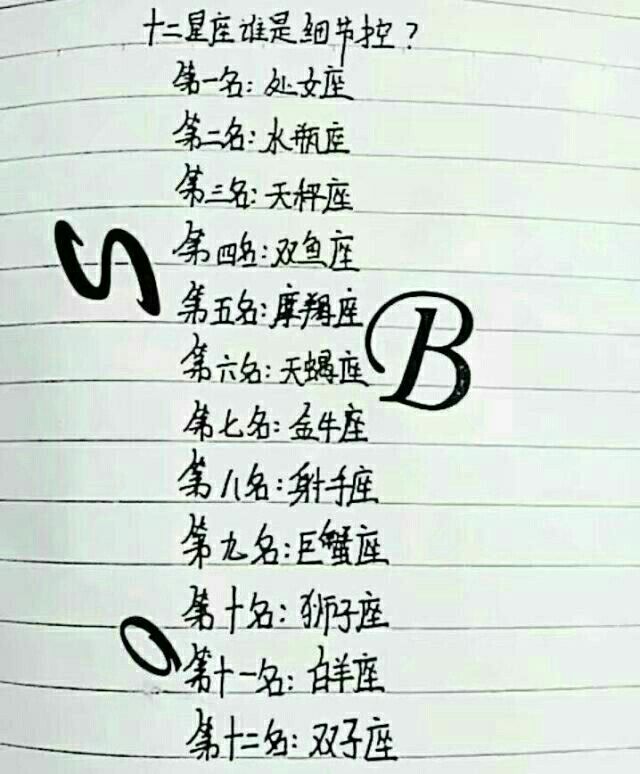 十二星座谁是细节控？
第一名：处女座
第二名：水瓶座
第三名：天秤座
第四名：双鱼座
第五名：摩羯座
B
第六名：天蝎座
第七名：金牛座
第八名：射手座
第九名：巨蟹座
第十名：狮子座
第十一名：白羊座
第十二名：双子座